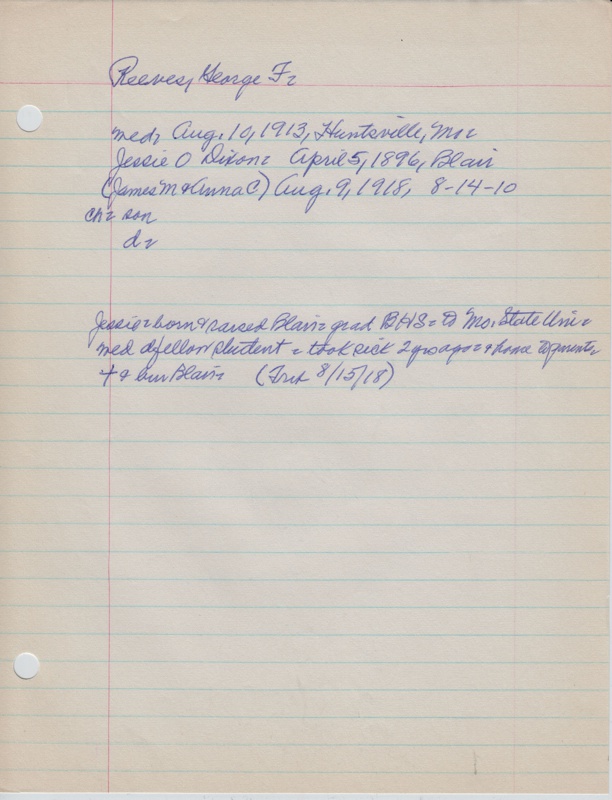 Reeves, George F.
med, Aug. 10, 1913, Huntsville, Mo.
Jessie O Dixon: April 5, 1896, Blair
(James M & Anna C) Aug. 9, 1918, 8-14-10
ch: son
d.
Jessie: born & raised Blair: grad BHS: to Mo. State Uni:
med a fellow student: took sick 2 yrs ago: & home to parents
+ & bur Blair: (Trib 8/15/18)